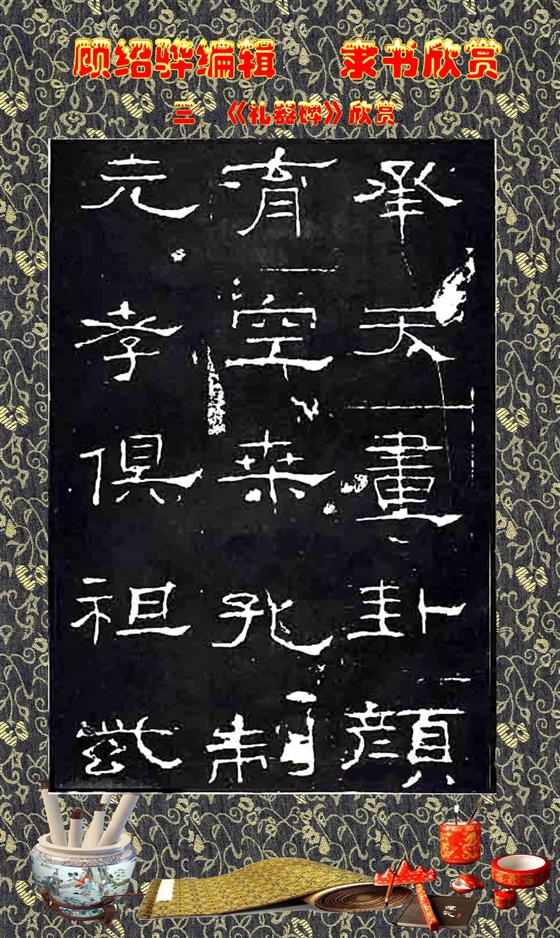 顾绍骅编辑 隶书欣赏
三 《礼器碑》欣赏
承天畫卦顏
育空桒孔制
元孝俱祖紫